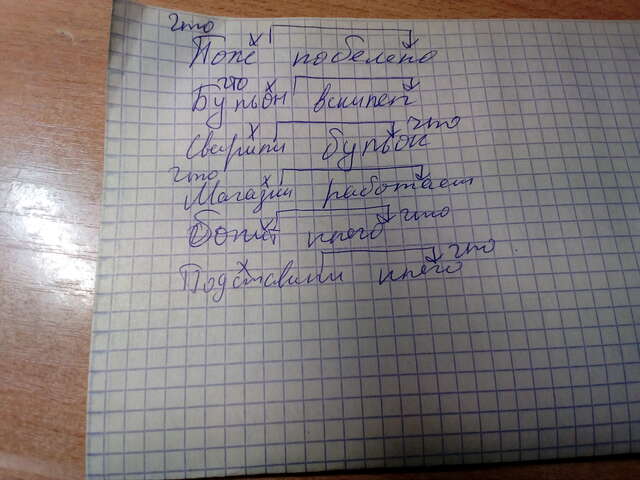 что
Поле побелело
что
Бульон вскипел
Сварили бульон что
что
Магазин работает
Болит плечо что
Подставили плечо что